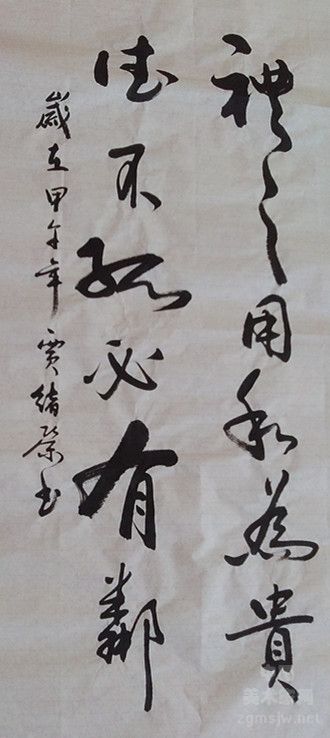 禮之用和為貴
徳不孤必有鄰
歲在甲午年賈緒榮書
美术家网
zgmsjw.net